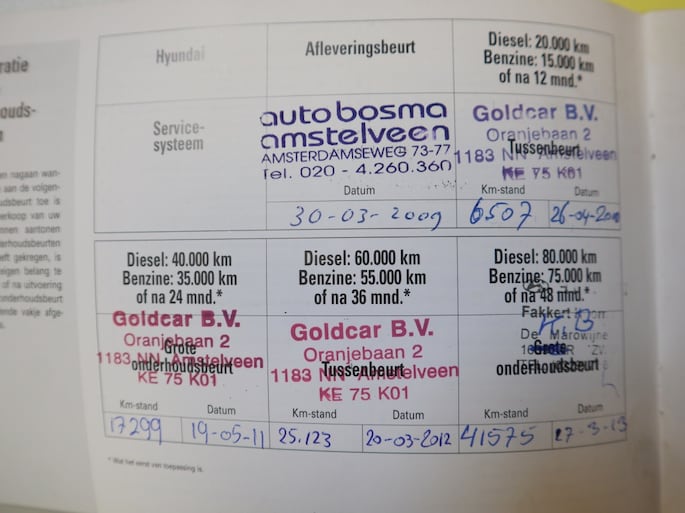 ratie
houds-
n
en nagaan wan-
aan de volgen-
udsbeurt toe is
verkoop van uw
nnen aantonen
derhoudsbeurten
eft gekregen, is
eigen belang te
of na uitvoering
onderhoudsbeurt
ende vakje afge-
s.
Hyundai
Afleveringsbeurt
Diesel: 20.000 km
Benzine: 15.000 km
of na 12 mnd.*
Service-
systeem
autobosma
amstelveen
AMSTERDAMSEWEG 73-77
Tel. 020 - 4.260.360
Datum
30-03-2009
Goldcar B.V.
Oranjebaan 2
Tussenbeurt
1183 NN Amstelveen
KE 75 K01
Km-stand
Datum
6507
26-04-20
Diesel: 40.000 km
Benzine: 35.000 km
of na 24 mnd.*
Goldcar B.V.
Oranjebaan 2
Grote
1183 NN Amstelveen
onderhoudsbeurt
KE 75 K01
Km-stand
Datum
17299
19-05-11
Diesel: 60.000 km
Benzine: 55.000 km
of na 36 mnd.*
Goldcar B.V.
Oranjebaan 2
1183 NN Amstelveen
Tussenbeurt
KE 75 K01
Km-stand
Datum
25.123
20-03-2012
Diesel: 80.000 km
Benzine: 75.000 km
of na 48 mnd.*
Fakkert
De Marowijne
Grote
onderhoudsbeurt
Km-stand
Datum
41575
27-3-13
* Wat het eerst van toepassing is.